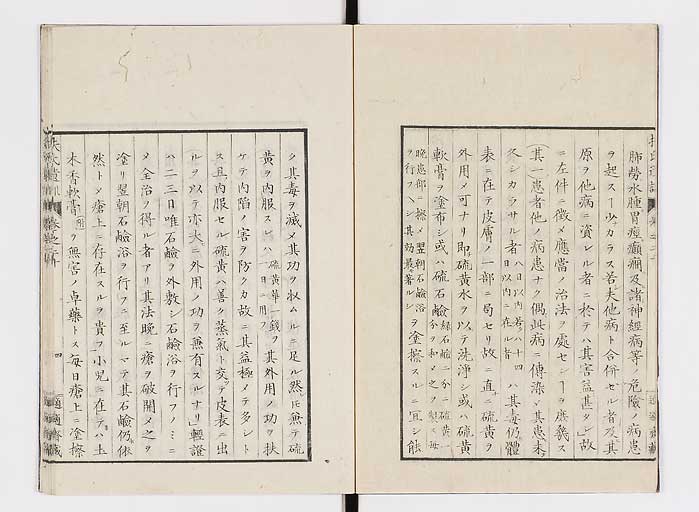 肺勞水腫胃痙癲癇及諸神經病等ノ危險ノ病患
ヲ起スヿ少カラス若夫他病ト合併セル者及其
原ヲ他病ニ資レル者ニ於テハ其害益甚タシ故
ニ左件ニ徴メ應當ノ治法ヲ處センヿヲ庶幾ス
其一患者他ノ病患ナク偶此病ニ傳染メ其患未
久シカラサル者 八日以内若クハ十四日以内ニ在ル者 ハ其毒仍體
表ニ在テ皮膚ノ一部ニ局セリ故ニ直ニ硫黄ヲ
外用メ可ナリ即硫黄水ヲ以テ洗淨シ或ハ硫黄
軟膏ヲ塗布シ或ハ硫石鹼 綠石鹼二分硫黄一分ヲ和メ之ヲ製ス毎
晩患部ニ擦メ翌朝石鹼浴ヲ行フヘシ其効最著ルシ ヲ塗擦スルニ宜シ蝕
ク其毒ヲ滅メ其功ヲ收ムルニ足ル然𪜈無テ硫
黄ヲ内服スレハ 硫黄華一錢ヲ一日ニ用フ 其外用ノ功ヲ扶
ケテ内陷ノ害ヲ防クカ故ニ其益極メテ多シト
ス且内服セル硫黄ハ善ク蒸氣ト交テ皮表ニ出
ルヲ以テ亦大ニ外用ノ功ヲ無有スルナリ輕證
ハ二三日唯石鹼ヲ外敷シ石鹼浴ヲ行フノミニ
メ全治ヲ得ル者アリ其法晩ニ瘡ヲ破開メ之ヲ
塗リ翌朝石鹼浴ヲ行フニ至ルマテ其石鹼仍依
然トメ瘡上ニ存在スルヲ貴フ小兒ニ在テハ土
木香軟膏 ヲ無害ノ卓藥トス毎日瘡上ニ塗擦
四
適適齋藏